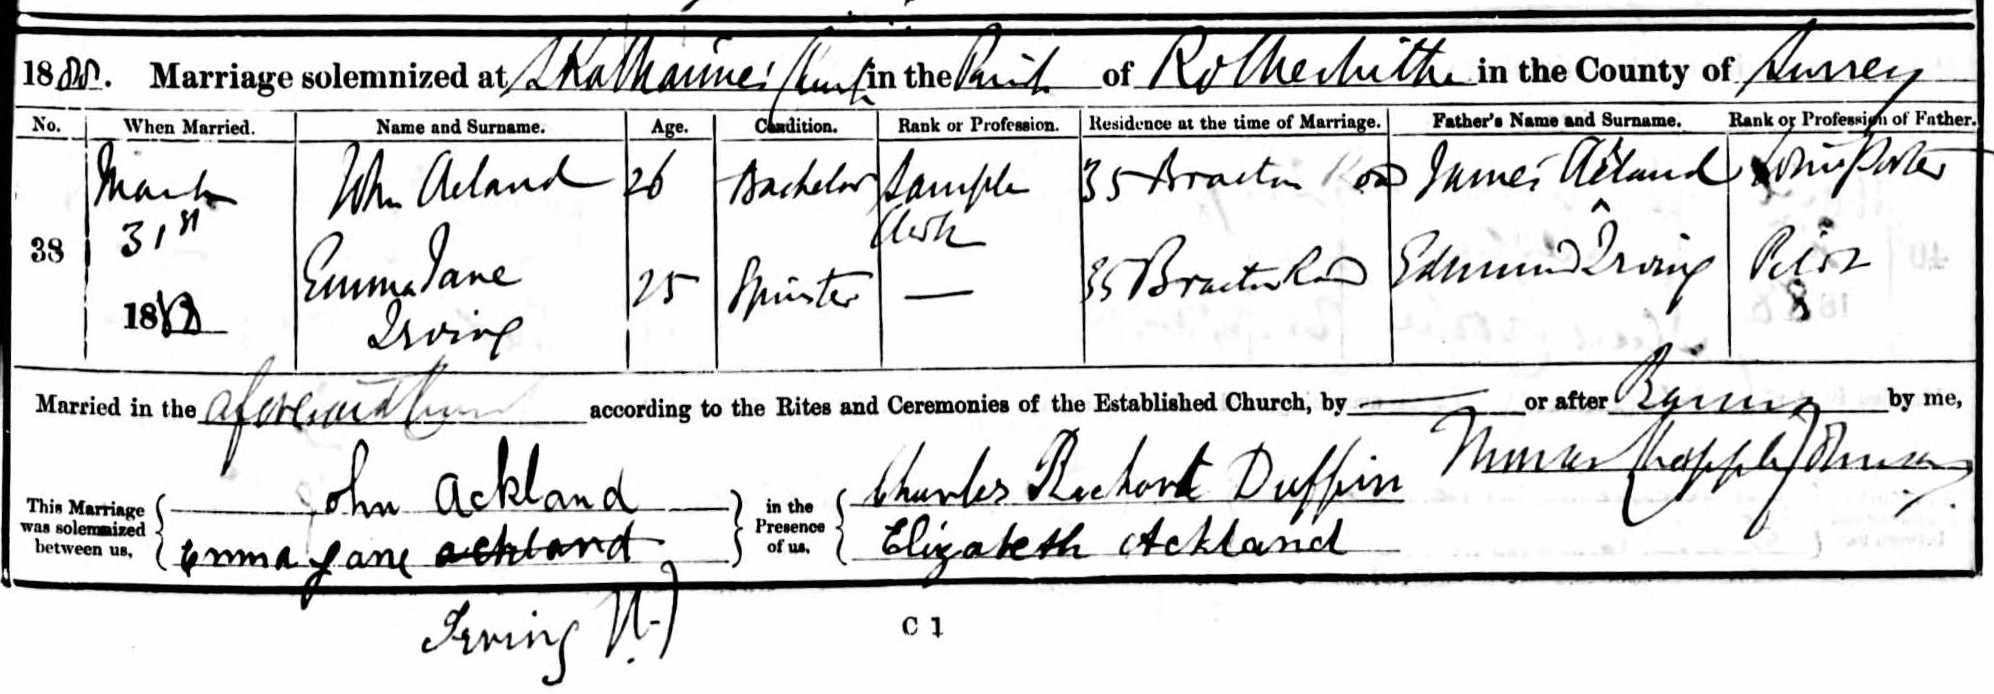 1888. Marriage solemnized at St Katharine's Church in the Parish of Rotherhithe in the County of Surrey
No. When Married. Name and Surname. Age. Condition. Rank or Profession. Residence at the time of Marriage. Father's Name and Surname. Rank or Profession of Father.
38 March 31st 1888 John Acland 26 Bachelor Sample Clerk 35 Bracton Road James Acland Porter
Emma Jane Irving 25 Spinster — 35 Bracton Road Edmund Irving Pilot
8
Married in the aforesaid Church according to the Rites and Ceremonies of the Established Church, by — or after Banns by me,
This Marriage was solemnized between us, John Ackland in the Presence of us, Charles Richard Duffin
Emma Jane Ackland Elizabeth Ackland
Irving
C 1